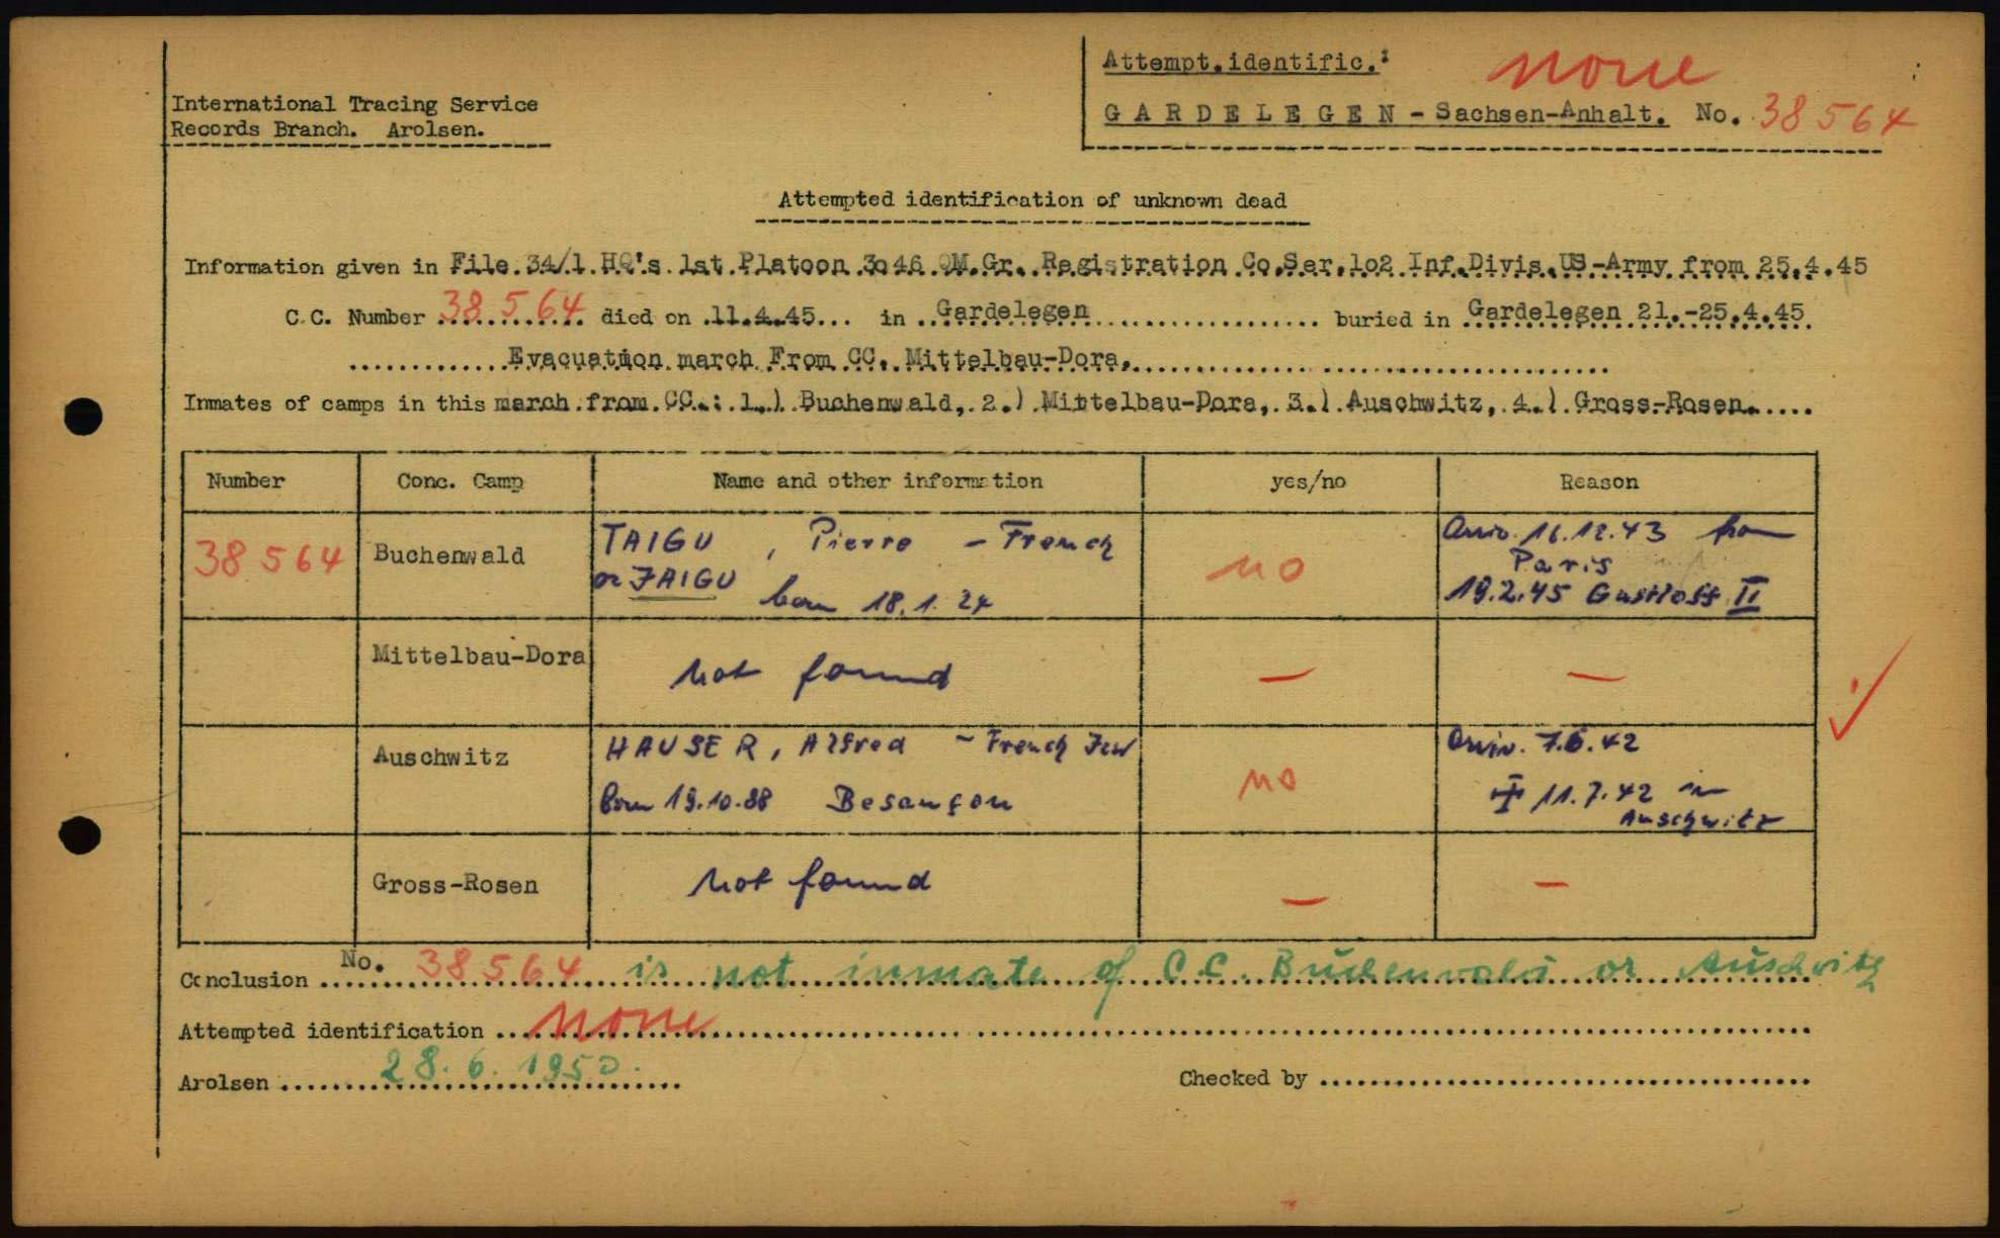 Attempt.identific.: none
International Tracing Service
Records Branch. Arolsen.
GARDELEGEN - Sachsen-Anhalt. No. 38564
Attempted identification of unknown dead
Information given in File.34/1.HQ's.1st.Platoon.3o46.QM.Gr..Registration.Co.Ser.1o2.Inf.Divis.US-Army.from.25.4.45
C.C. Number 38564 died on .11.4.45... in ..Gardelegen........ buried in Gardelegen 21.-25.4.45.
Evacuation march From CC. Mittelbau-Dora.
Inmates of camps in this march.from.CC.: 1.) Buchenwald, 2.) Mittelbau-Dora, 3.) Auschwitz, 4.) Gross-Rosen.....
Number Conc. Camp Name and other information yes/no Reason
38564 Buchenwald TAIGU, Pierre - French no Arriv. 16.12.43 from
Paris
or JAIGU born 18.1.24 19.2.45 Gustloff II
Mittelbau-Dora not found — —
Auschwitz HAUSER, Alfred - French Jew no Arriv. 7.6.42
born 19.10.88 Besançon † 11.7.42 in
Auschwitz
Gross-Rosen not found — —
Conclusion No. 38564 is not inmate of C.C. Buchenwald or Auschwitz
Attempted identification none
Arolsen 28.6.1950.
Checked by